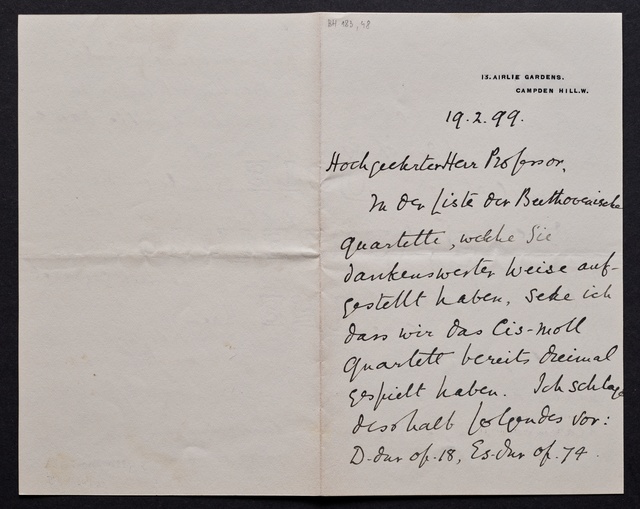 BH 183, 48
13, AIRLIE GARDENS.
CAMPDEN HILL. W.
19.2.99.
Hochgeehrter Herr Professor,
In der Liste der Beethovenische
Quartette, welche Sie
dankenswerter Weise auf-
gestellt haben, sehe ich
dass wir das Cis-moll
Quartett bereits dreimal
gespielt haben. Ich schlage
desshalb folgendes vor:
D-dur op. 18, Es-dur op. 74.